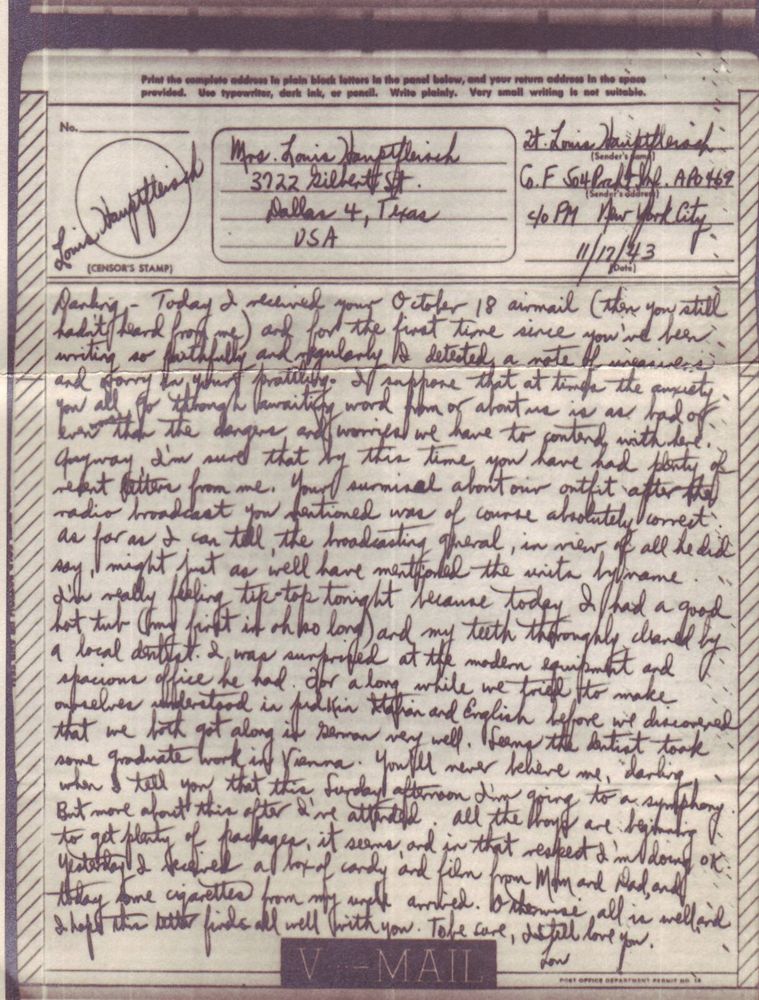 Print the complete address in plain block letters in the panel below, and your return address in the space
provided. Use typewriter, dark ink, or pencil. Write plainly. Very small writing is not suitable.
No.
Louis Hauptfleisch
(CENSOR'S STAMP)
Mrs. Louis Hauptfleisch
3722 Gilbert St.
Dallas 4, Texas
USA
Lt. Louis Hauptfleisch
(Sender's name)
Co. F 504 Prcht Inf. APO 469
(Sender's address)
c/o PM New York City
11/17/43
(Date)
Darling - Today I received your October 18 airmail (then you still
hadn't heard from me) and for the first time since you've been
writing so faithfully and regularly I detected a note of uneasiness
and worry in your prattling. I suppose that at times the anxiety
you all go through awaiting word from or about us is as bad or
even worse than the dangers and worries we have to contend with here.
Anyway I'm sure that by this time you have had plenty of
recent letters from me. Your surmisal about our outfit after the
radio broadcast you mentioned was of course absolutely correct.
As far as I can tell, the broadcasting general, in view of all he did
say, might just as well have mentioned the units by name.
I'm really feeling tip-top tonight because today I had a good
hot tub (my first in oh so long) and my teeth thoroughly cleaned by
a local dentist. I was surprised at the modern equipment and
spacious office he had. For a long while we tried to make
ourselves understood in pidkin Italian and English before we discovered
that we both got along in German very well. Seems the dentist took
some graduate work in Vienna. You'll never believe me, darling
when I tell you that this Sunday afternoon I'm going to a symphony.
But more about this after I've attended. All the boys are beginning
to get plenty of packages, it seems, and in that respect I'm doing OK.
Yesterday I received a box of candy and film from Mom and Dad, and
today some cigarettes from my uncle arrived. Otherwise, all is well and
I hope this letter finds all well with you. To be sure, I still love you.
Lou
V···—MAIL
POST OFFICE DEPARTMENT PERMIT NO. 16